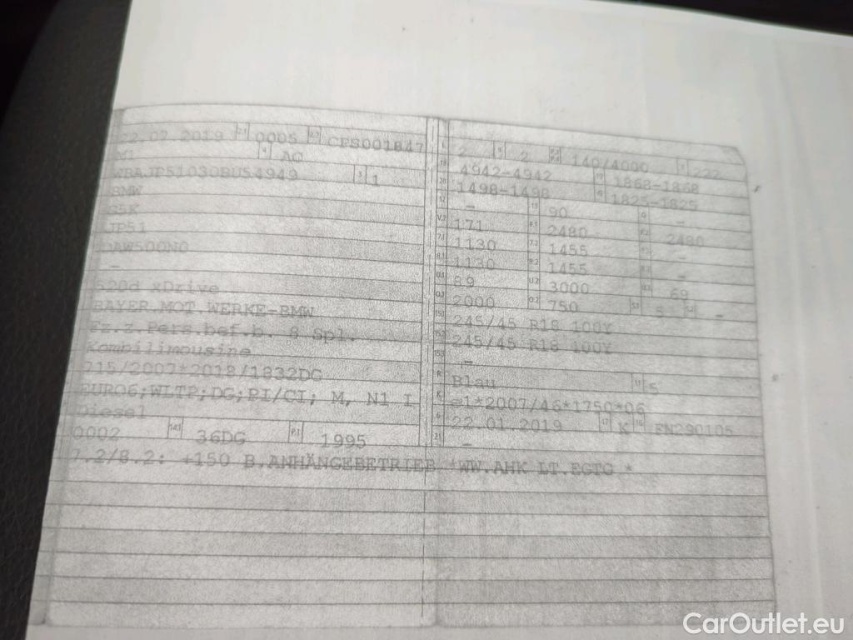 2019 0005 CFS001847
M1 AC
WBAJP51030BU54949 1
BMW
G5K
JP51
DAW500N0
-
520d xDrive
BAYER.MOT.WERKE-BMW
Fz.z.Pers.bef.b. 8 Spl.
Kombilimousine
715/2007*2018/1832DG
EURO6;WLTP;DG;PI/CI; M, N1 I
Diesel
0002 36DG 1995
2 2 140/4000 222
4942-4942 1868-1868
1498-1498 1825-1825
- 90 -
171 2480 2480
1130 1455 -
1130 1455 -
89 3000 69
2000 750 -
245/45 R18 100Y
245/45 R18 100Y
-
Blau 5
e1*2007/46*1750*06
22.01.2019 K FN290105
-
7.2/8.2: +150 B.ANHÄNGEBETRIEB *WW.AHK LT.EGTG *
CarOutlet.eu